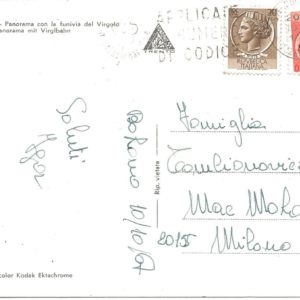 - Panorama con la funivia del Virgolo
Panorama mit Virglbahn
APPLICATE
DI CODIC
TRENTO
Saluti
Bolzano 10/10/67
Famiglia
Mac Mahon
20155 Milano
Rip. vietata
color Kodak Ektachrome